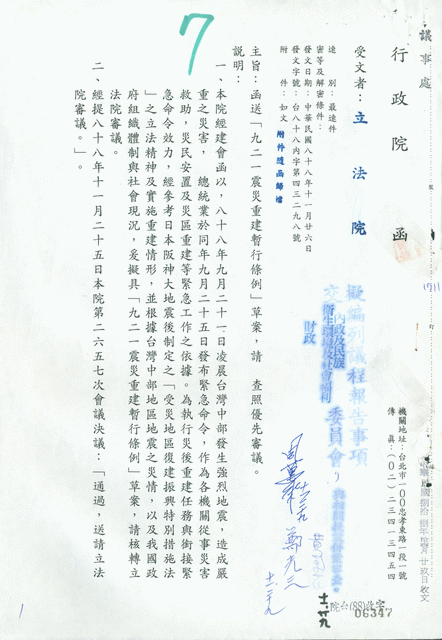 議事處
行政院 函
機關地址：台北市一00忠孝東路一段一號
傳真：(0二)二三四一三四五四
受文者：立法院
速別：最速件
密等及解密條件：
發文日期：中華民國八十八年十一月廿六日
發文字號：台八十八內字第四三二九八號
附件：如文
附件隨函歸檔
主旨：函送「九二一震災重建暫行條例」草案，請 查照優先審議。
說明：
一、本院經建會函以，八十八年九月二十一日凌晨台灣中部發生強烈地震，造成嚴
重之災害， 總統業於同年九月二十五日發布緊急命令，作為各機關從事災害
救助，災民安置及災區重建等緊急工作之依據。為執行災後重建任務與銜接緊
急命令效力，經參考日本阪神大地震後制定之「受災地區復建振興特別措施法
」之立法精神及實施重建情形，並根據台灣中部地區地震之災情，以及我國政
府組織體制與社會現況，爰擬具「九二一震災重建暫行條例」草案，請核轉立
法院審議。
二、經提八十八年十一月二十五日本院第二六五七次會議決議：「通過，送請立法
院審議。」。
7
擬編列議程報告事項
內政及民族
交
衛生環境及社會福利
委員會
財政
院台(88)收字
06347
1